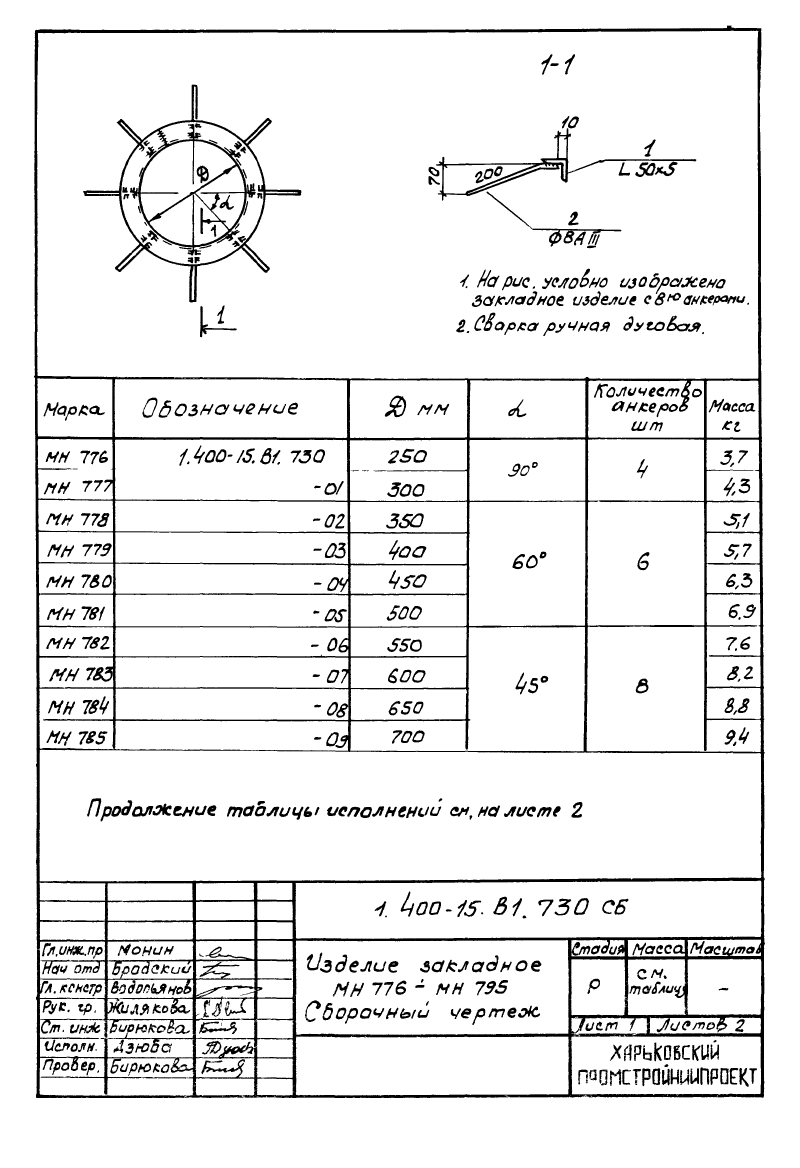 1-1
Д
α
1
1
10
70
200
1
L 50×5
2
Ф8АIII
1. На рис. условно изображено
закладное изделие с 8ю анкерами.
2. Сварка ручная дуговая.
Марка Обозначение Д мм α Количество анкеров шт Масса кг
МН 776 1.400-15.В1.730 250 90° 4 3,7
МН 777 -01 300 4,3
МН 778 -02 350 60° 6 5,1
МН 779 -03 400 5,7
МН 780 -04 450 6,3
МН 781 -05 500 6.9
МН 782 -06 550 45° 8 7.6
МН 783 -07 600 8.2
МН 784 -08 650 8,8
МН 785 -09 700 9,4
Продолжение таблицы исполнений см, на листе 2
1.400-15.В1.730 СБ
Гл.инж.пр Монин
Нач отд Бродский
Гл.констр Водопьянов
Рук. гр. Жилякова
Ст. инж Бирюкова
Исполн. Дзюба
Провер. Бирюкова
Изделие закладное
МН 776 ÷ МН 795
Сборочный чертеж
Стадия Масса Масштаб
Р см. таблицу –
Лист 1 Листов 2
ХАРЬКОВСКИЙ
ПРОМСТРОЙНИИПРОЕКТ